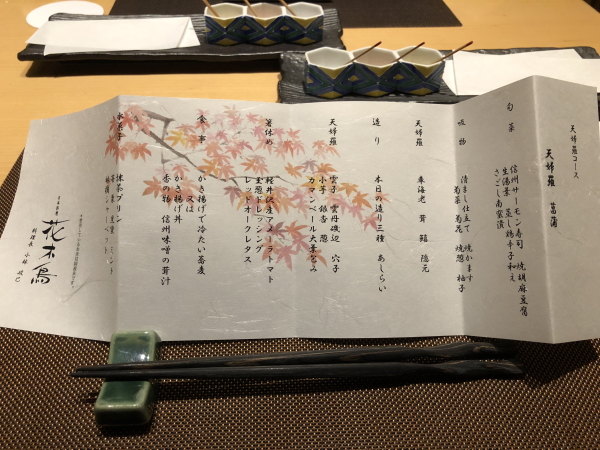 天婦羅コース
天婦羅　菖蒲
旬菜
信州サーモン寿司　焼胡麻豆腐
生湯葉　蒸し鶏辛子和え
さごし南蛮漬
吸物
清まし仕立て　焼かます
菊菜　菊花　焼葱　柚子
天婦羅
車海老　茸　鱚　隠元
造り
本日の造り三種　あしらい
天婦羅
雲子　雲丹磯辺　穴子
小芋　銀杏　葱
カマンベール大葉包み
箸休め
軽井沢産アメーラトマト
玉葱ドレッシング
レッドオークレタス
食事
かき揚げで冷たい蕎麦
又は
かき揚げ丼
香の物　信州味噌の茸汁
水菓子
抹茶プリン
花木鳥
料理長　小林